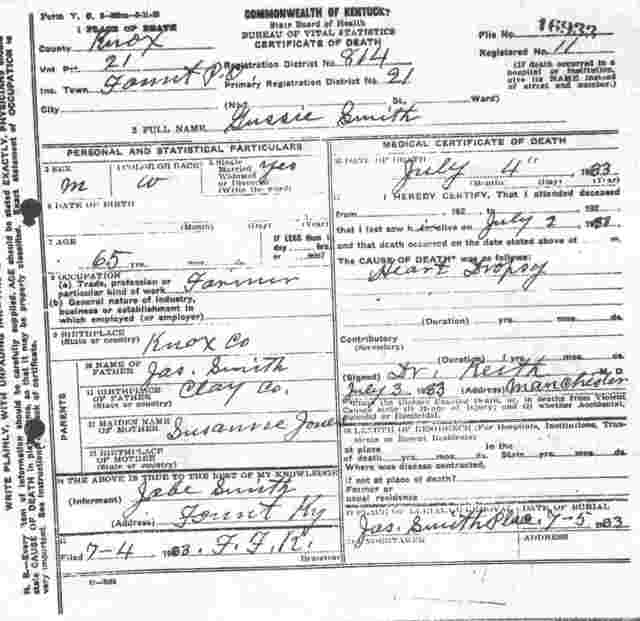 Form V. S.
COMMONWEALTH OF KENTUCKY
State Board of Health
BUREAU OF VITAL STATISTICS
CERTIFICATE OF DEATH
File No. 16933
Registered No. 11
(If death occurred in a hospital or institution, give its NAME instead of street and number.)
1 PLACE OF DEATH
County Knox
Vot. Pct. 21
Registration District No. 814
Inc. Town Fount P.O
Primary Registration District No. 21
City (No. St., Ward)
2 FULL NAME Gussie Smith
PERSONAL AND STATISTICAL PARTICULARS
3 SEX m
4 COLOR OR RACE W
5 Single Married Widowed or Divorced (Write the word) yes
6 DATE OF BIRTH
(Month) (Day) (Year)
7 AGE
65 yrs. mos. ds.
If LESS than 1 day hrs. or min?
8 OCCUPATION
(a) Trade, profession or particular kind of work Farmer
(b) General nature of industry, business or establishment in which employed (or employer)
9 BIRTHPLACE
(State or country) Knox Co
PARENTS
10 NAME OF FATHER Jas. Smith
11 BIRTHPLACE OF FATHER
(State or country) Clay Co.
12 MAIDEN NAME OF MOTHER Susannie Jones
13 BIRTHPLACE OF MOTHER
(State or country)
14 THE ABOVE IS TRUE TO THE BEST OF MY KNOWLEDGE
(Informant) Jobe Smith
(Address) Fount Ky
15
Filed 7-4 1933. F. F. R.
Registrar
MEDICAL CERTIFICATE OF DEATH
16 DATE OF DEATH July 4" 1933
(Month) (Day) (Year)
17 I HEREBY CERTIFY, That I attended deceased
from 192 to 192
that I last saw h im alive on July 2
and that death occurred on the date stated above at m.
The CAUSE OF DEATH was as follows:
Heart Dropsy
(Duration) yrs. mos. ds.
Contributory
(Secondary)
(Duration) yrs. mos. ds.
(Signed) Dr. Keith M. D.
July 3, 1933 (Address) Manchester
18 LENGTH OF RESIDENCE (For Hospitals, Institutions, Transients or Recent Residents)
At place of death yrs. mos. ds. In the State yrs. mos. ds.
Where was disease contracted,
if not at place of death?
Former or usual residence
19 PLACE OF BURIAL OR REMOVAL
DATE OF BURIAL
Jas. Smith Place 7-5 1933
20 UNDERTAKER
ADDRESS